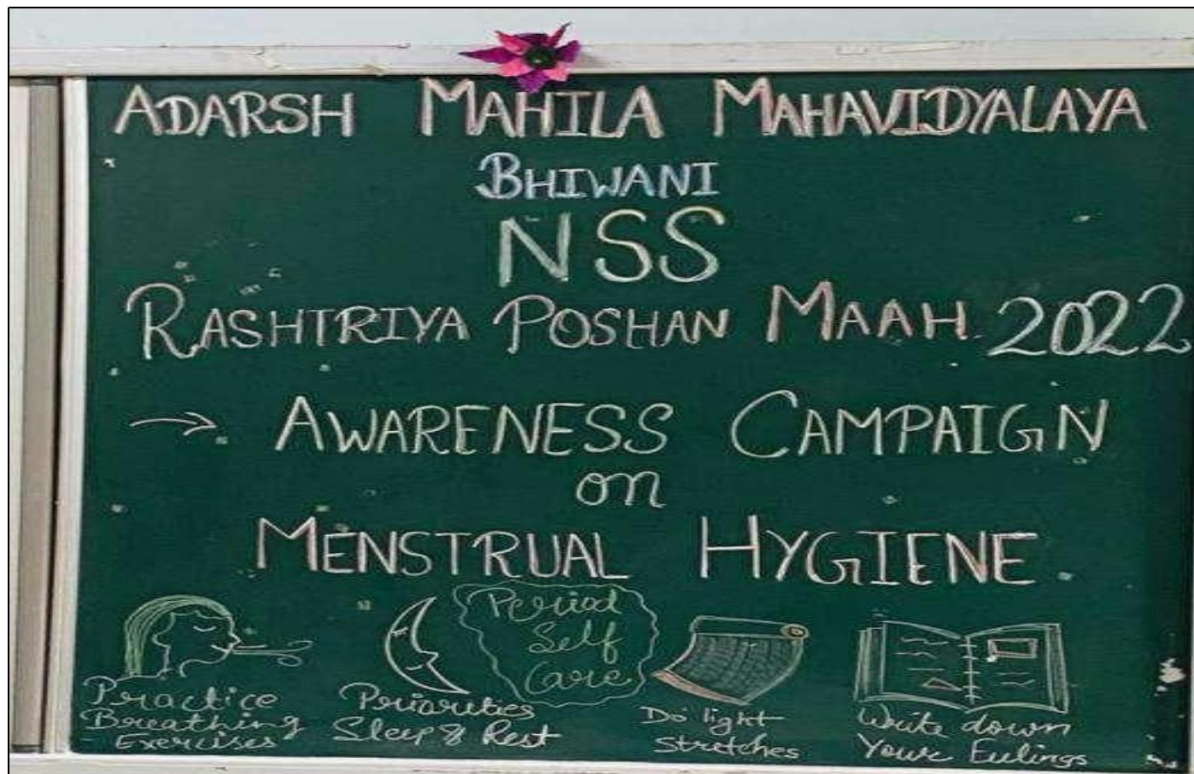 ADARSH MAHILA MAHAVIDYALAYA
BHIWANI
NSS
RASHTRIYA POSHAN MAAH 2022
→ AWARENESS CAMPAIGN
on
MENSTRUAL HYGIENE
Period
Self
Care
Practice
Breathing
Exercises
Priorities
Sleep & Rest
Do light
Stretches
Write down
Your Eulings